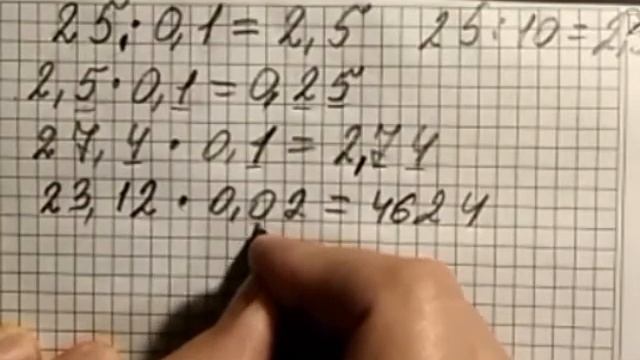 25 : 0,1 = 2,5 25 : 10 = 2,5
2,5 · 0,1 = 0,25
27,4 · 0,1 = 2,74
23,12 · 0,02 = 4624